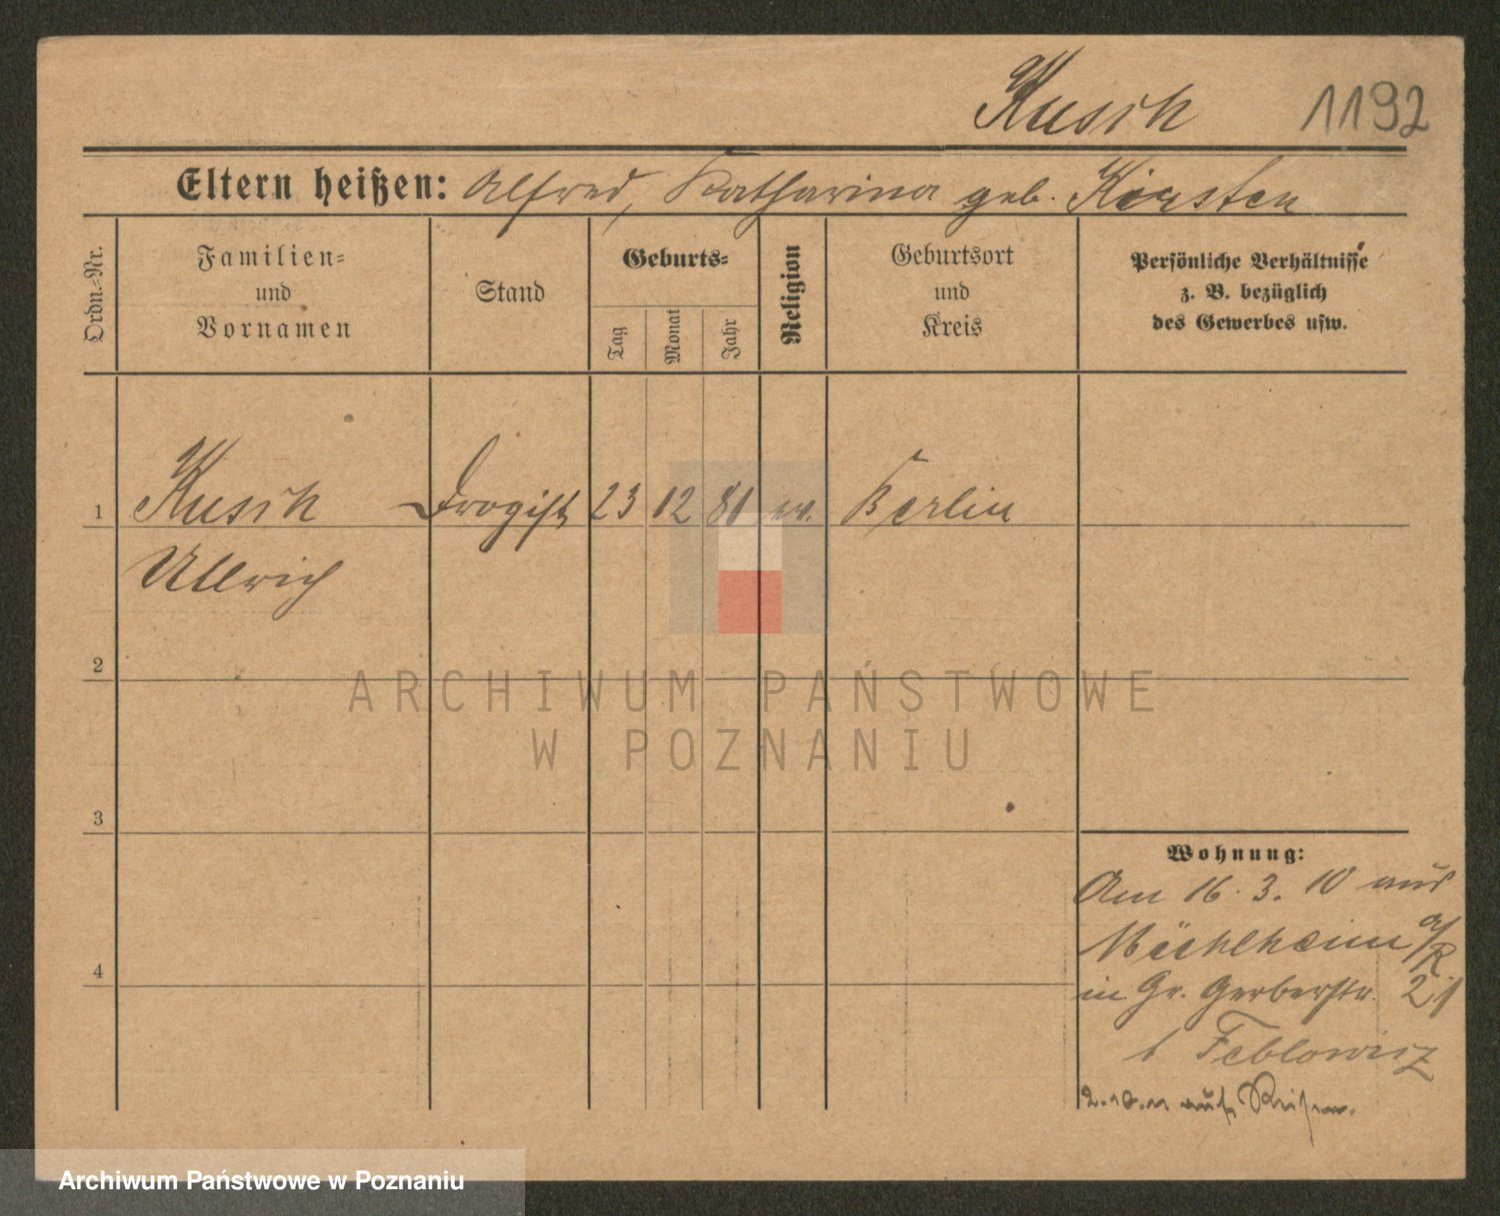 Kusch 1192
Eltern heißen: Alfred, Katharina geb. Kirsten
Ordn.-Nr.
Familien-
und
Vornamen
Stand
Geburts-
Tag
Monat
Jahr
Religion
Geburtsort
und
Kreis
Persönliche Verhältnisse
z. B. bezüglich
des Gewerbes usw.
1 Kusch Drogist 23 12 81 ev. Berlin
Ullrich
2
3
4
Wohnung:
Am 16. 3. 10 aus
a/R
in Gr. Gerberstr. 21
2.10.11 auf Reisen.
ARCHIWUM PAŃSTWOWE
W POZNANIU
Archiwum Państwowe w Poznaniu